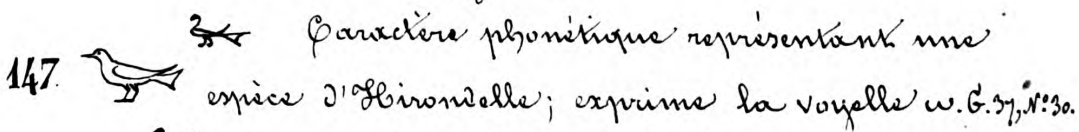 Caractère phonétique représentant une
147. espèce d'Hirondelle; exprime la voyelle ω. G. 37, N.º 30.